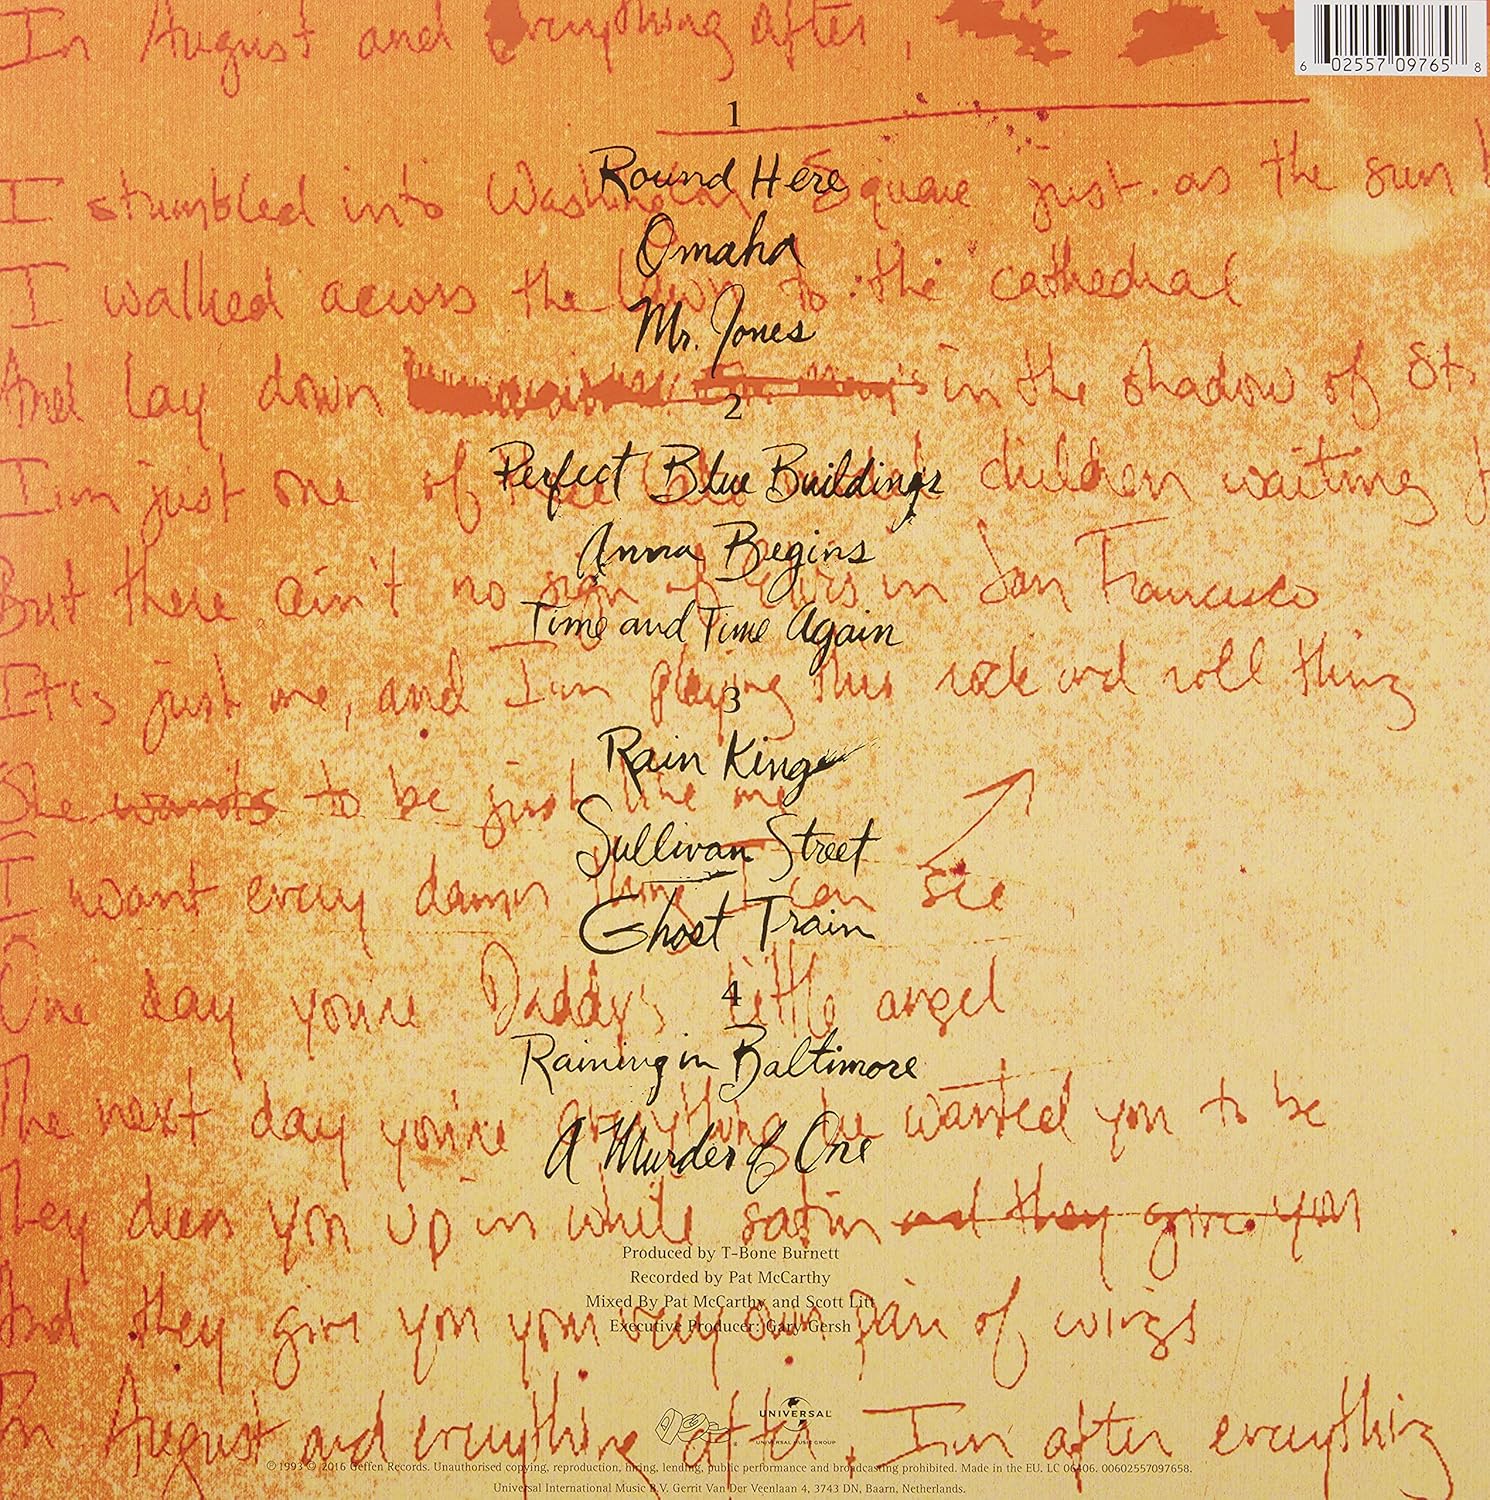 In August and everything after,
6 02557 09765 8
1
I stumbled into Washington Square just as the sun
Round Here
Omaha
I walked across the lawn to the cathedral
Mr. Jones
And lay down in the shadow of St.
2
Perfect Blue Buildings
I'm just one of these late children waiting
Anna Begins
But there ain't no sign of in San Francisco
Time and Time Again
It's just me, and I'm playing this rock and roll thing
3
Rain King
She wants to be just like me
Sullivan Street
I want every damn thing I can see
Ghost Train
One day you're Daddy's little angel
4
Raining in Baltimore
The next day you're everything he wanted you to be
A Murder of One
They dress you up in white satin and they give you
Produced by T-Bone Burnett
Recorded by Pat McCarthy
Mixed By Pat McCarthy and Scott Litt
And they give you your very own pair of wings
Executive Producer: Gary Gersh
UNIVERSAL
UNIVERSAL MUSIC GROUP
In August and everything after, I'm after everything
℗ 1993 © 2016 Geffen Records. Unauthorised copying, reproduction, hiring, lending, public performance and broadcasting prohibited. Made in the EU. LC 06406. 00602557097658.
Universal International Music B.V. Gerrit Van Der Veenlaan 4, 3743 DN, Baarn, Netherlands.